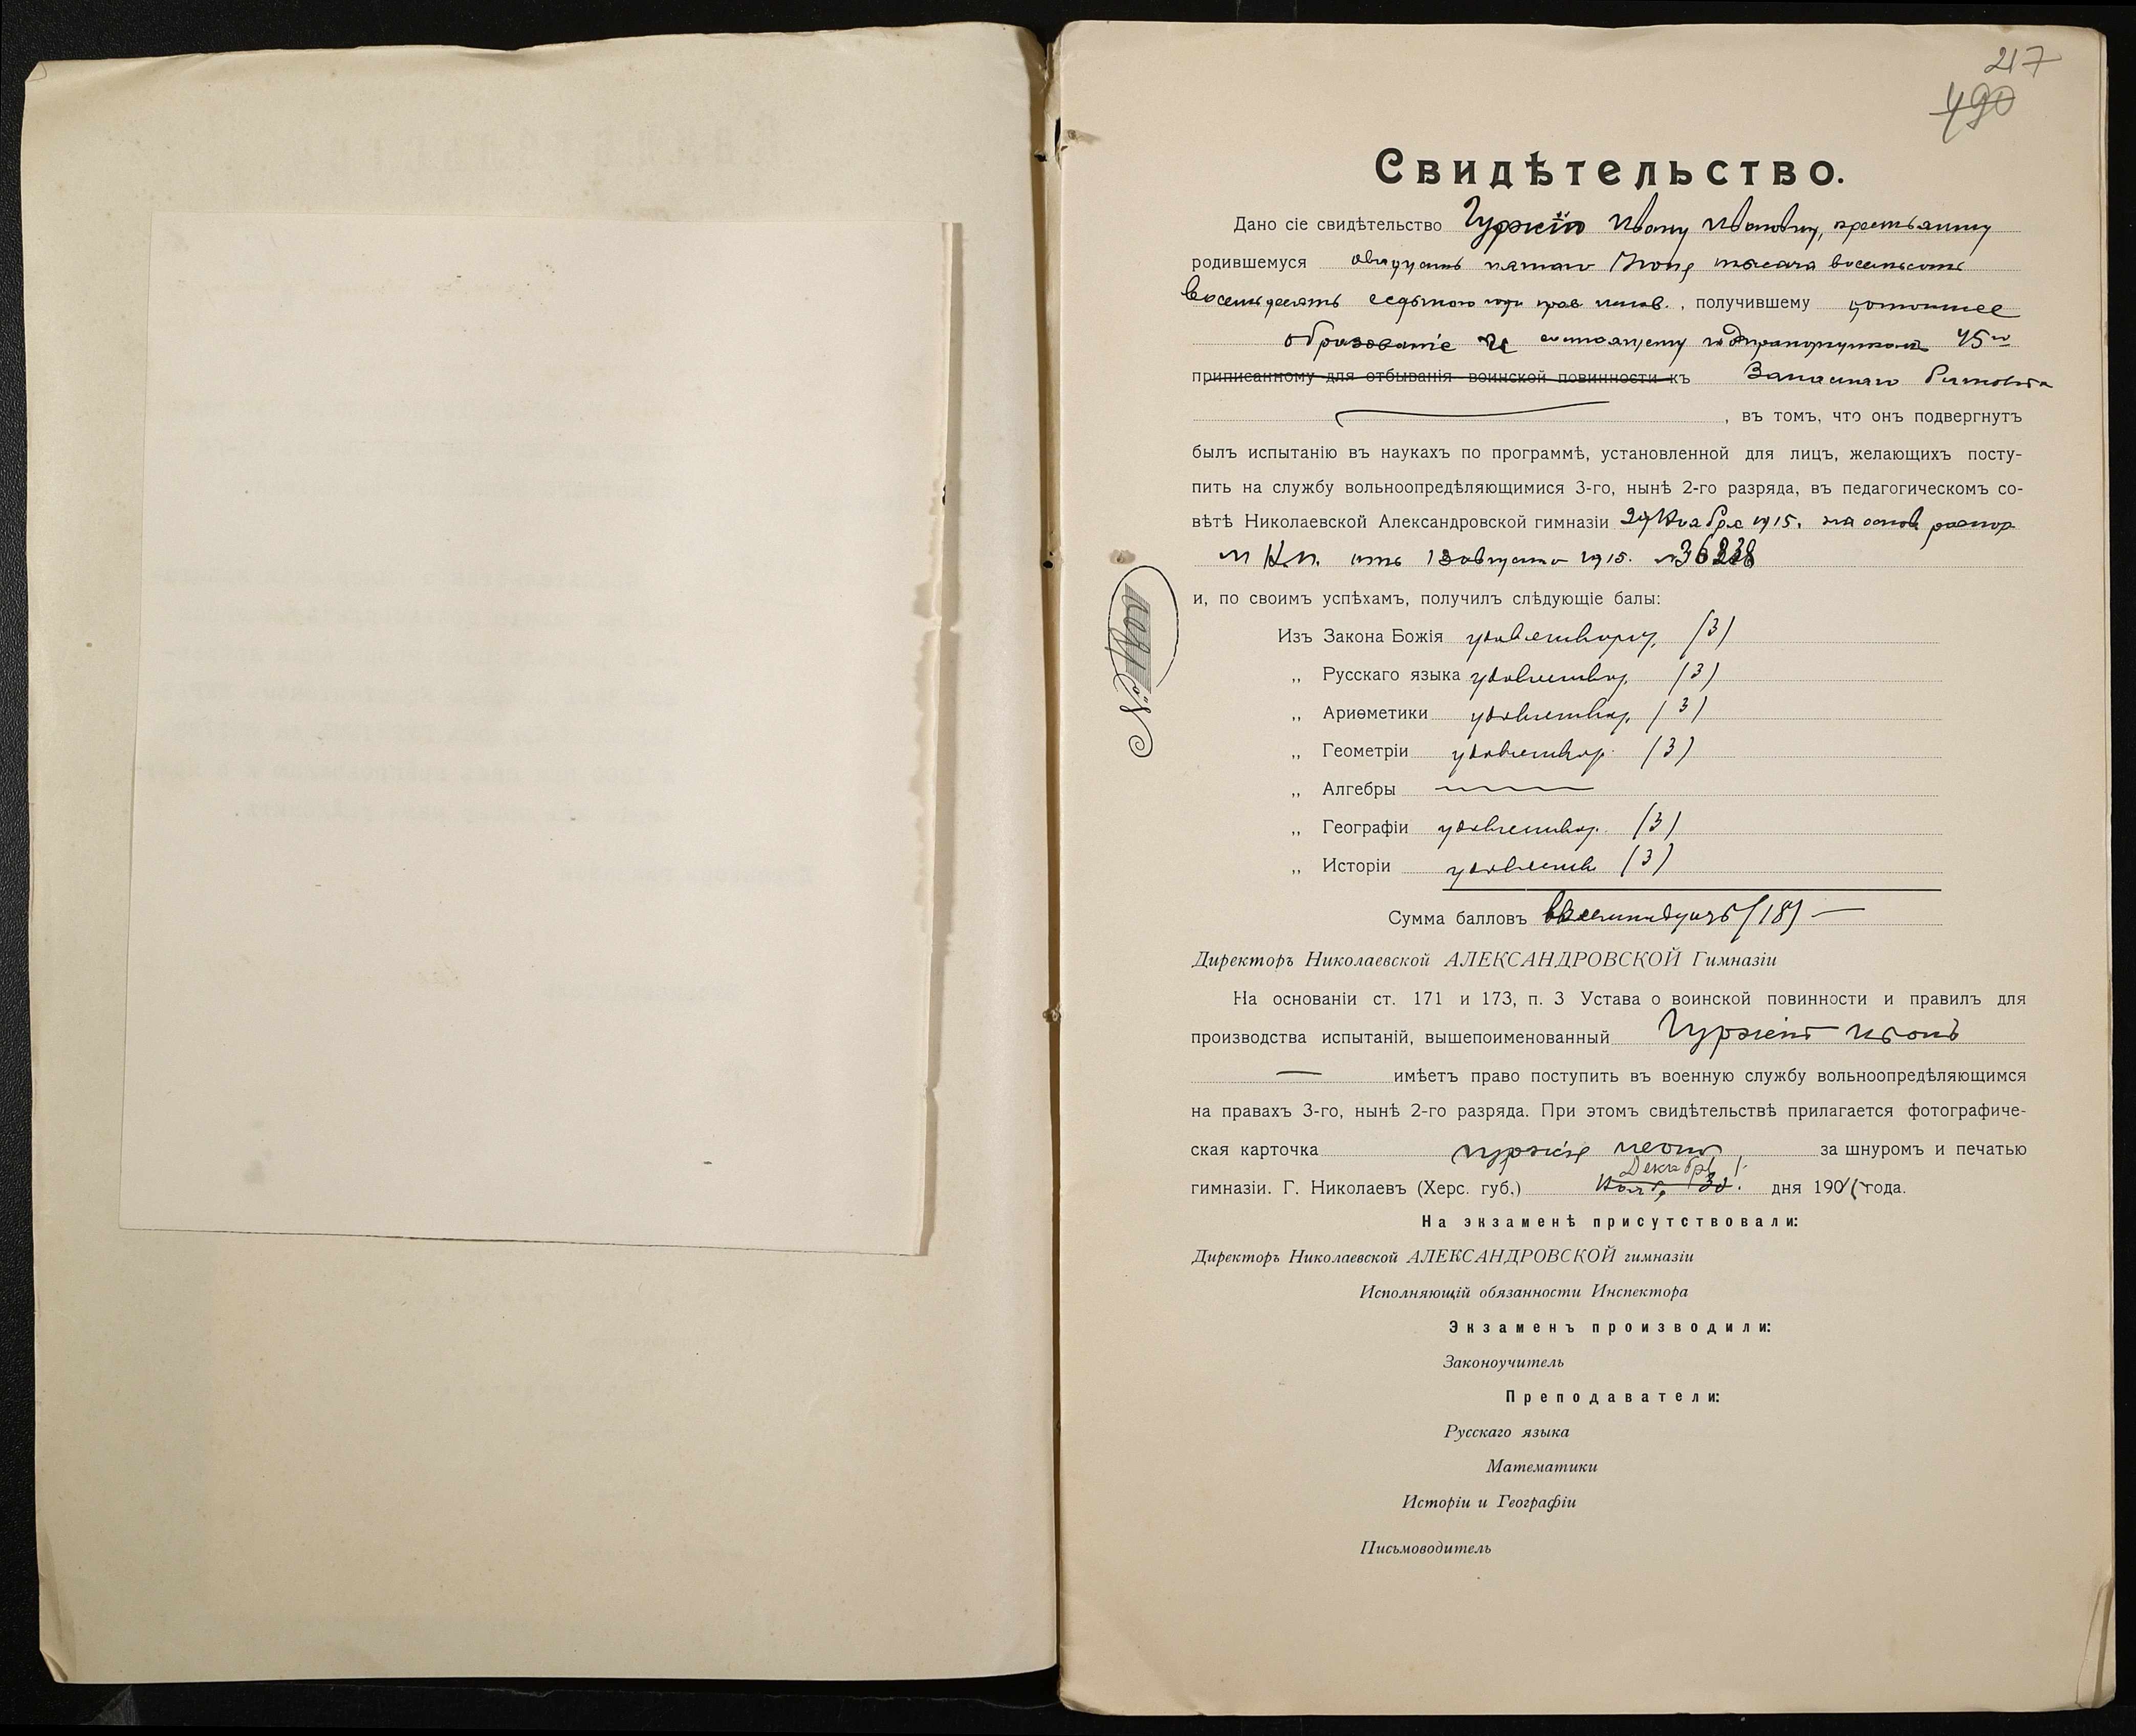 217
490
Свидѣтельство.
Дано сіе свидѣтельство Гуржій Ивану Ивановичу, крестьянину
родившемуся двадцать пятаго Іюня тысяча восемьсотъ
восемьдесятъ седьмого года прав. испов., получившему домашнее
образованіе и состоящему подпрапорщикомъ 45го
приписанному для отбыванія воинской повинности къ Запаснаго
, въ томъ, что онъ подвергнутъ
былъ испытанію въ наукахъ по программѣ, установленной для лицъ, желающихъ посту-
пить на службу вольноопредѣляющимися 3-го, нынѣ 2-го разряда, въ педагогическомъ со-
вѣтѣ Николаевской Александровской гимназіи 29 Ноября 1915. на основ. распор
М. Н. П. отъ 13 августа 1915. №
и, по своимъ успѣхамъ, получилъ слѣдующіе балы:
Изъ Закона Божія удовлетвор. (3)
„ Русскаго языка удовлетвор. (3)
„ Ариѳметики удовлетвор. (3)
„ Геометріи удовлетвор. (3)
„ Алгебры
„ Географіи удовлетвор. (3)
„ Исторіи удовлетв (3)
Сумма балловъ восемнадцать (18)
Директоръ Николаевской АЛЕКСАНДРОВСКОЙ Гимназіи
На основаніи ст. 171 и 173, п. 3 Устава о воинской повинности и правилъ для
производства испытаній, вышепоименованный Гуржій Иванъ
имѣетъ право поступить въ военную службу вольноопредѣляющимся
на правахъ 3-го, нынѣ 2-го разряда. При этомъ свидѣтельствѣ прилагается фотографиче-
ская карточка Гуржія Ивана за шнуромъ и печатью
Декабря 1.
гимназіи. Г. Николаевъ (Херс. губ.) Ноября 30. дня 1915 года.
На экзаменѣ присутствовали:
Директоръ Николаевской АЛЕКСАНДРОВСКОЙ гимназіи
Исполняющій обязанности Инспектора
Экзаменъ производили:
Законоучитель
Преподаватели:
Русскаго языка
Математики
Исторіи и Географіи
Письмоводитель